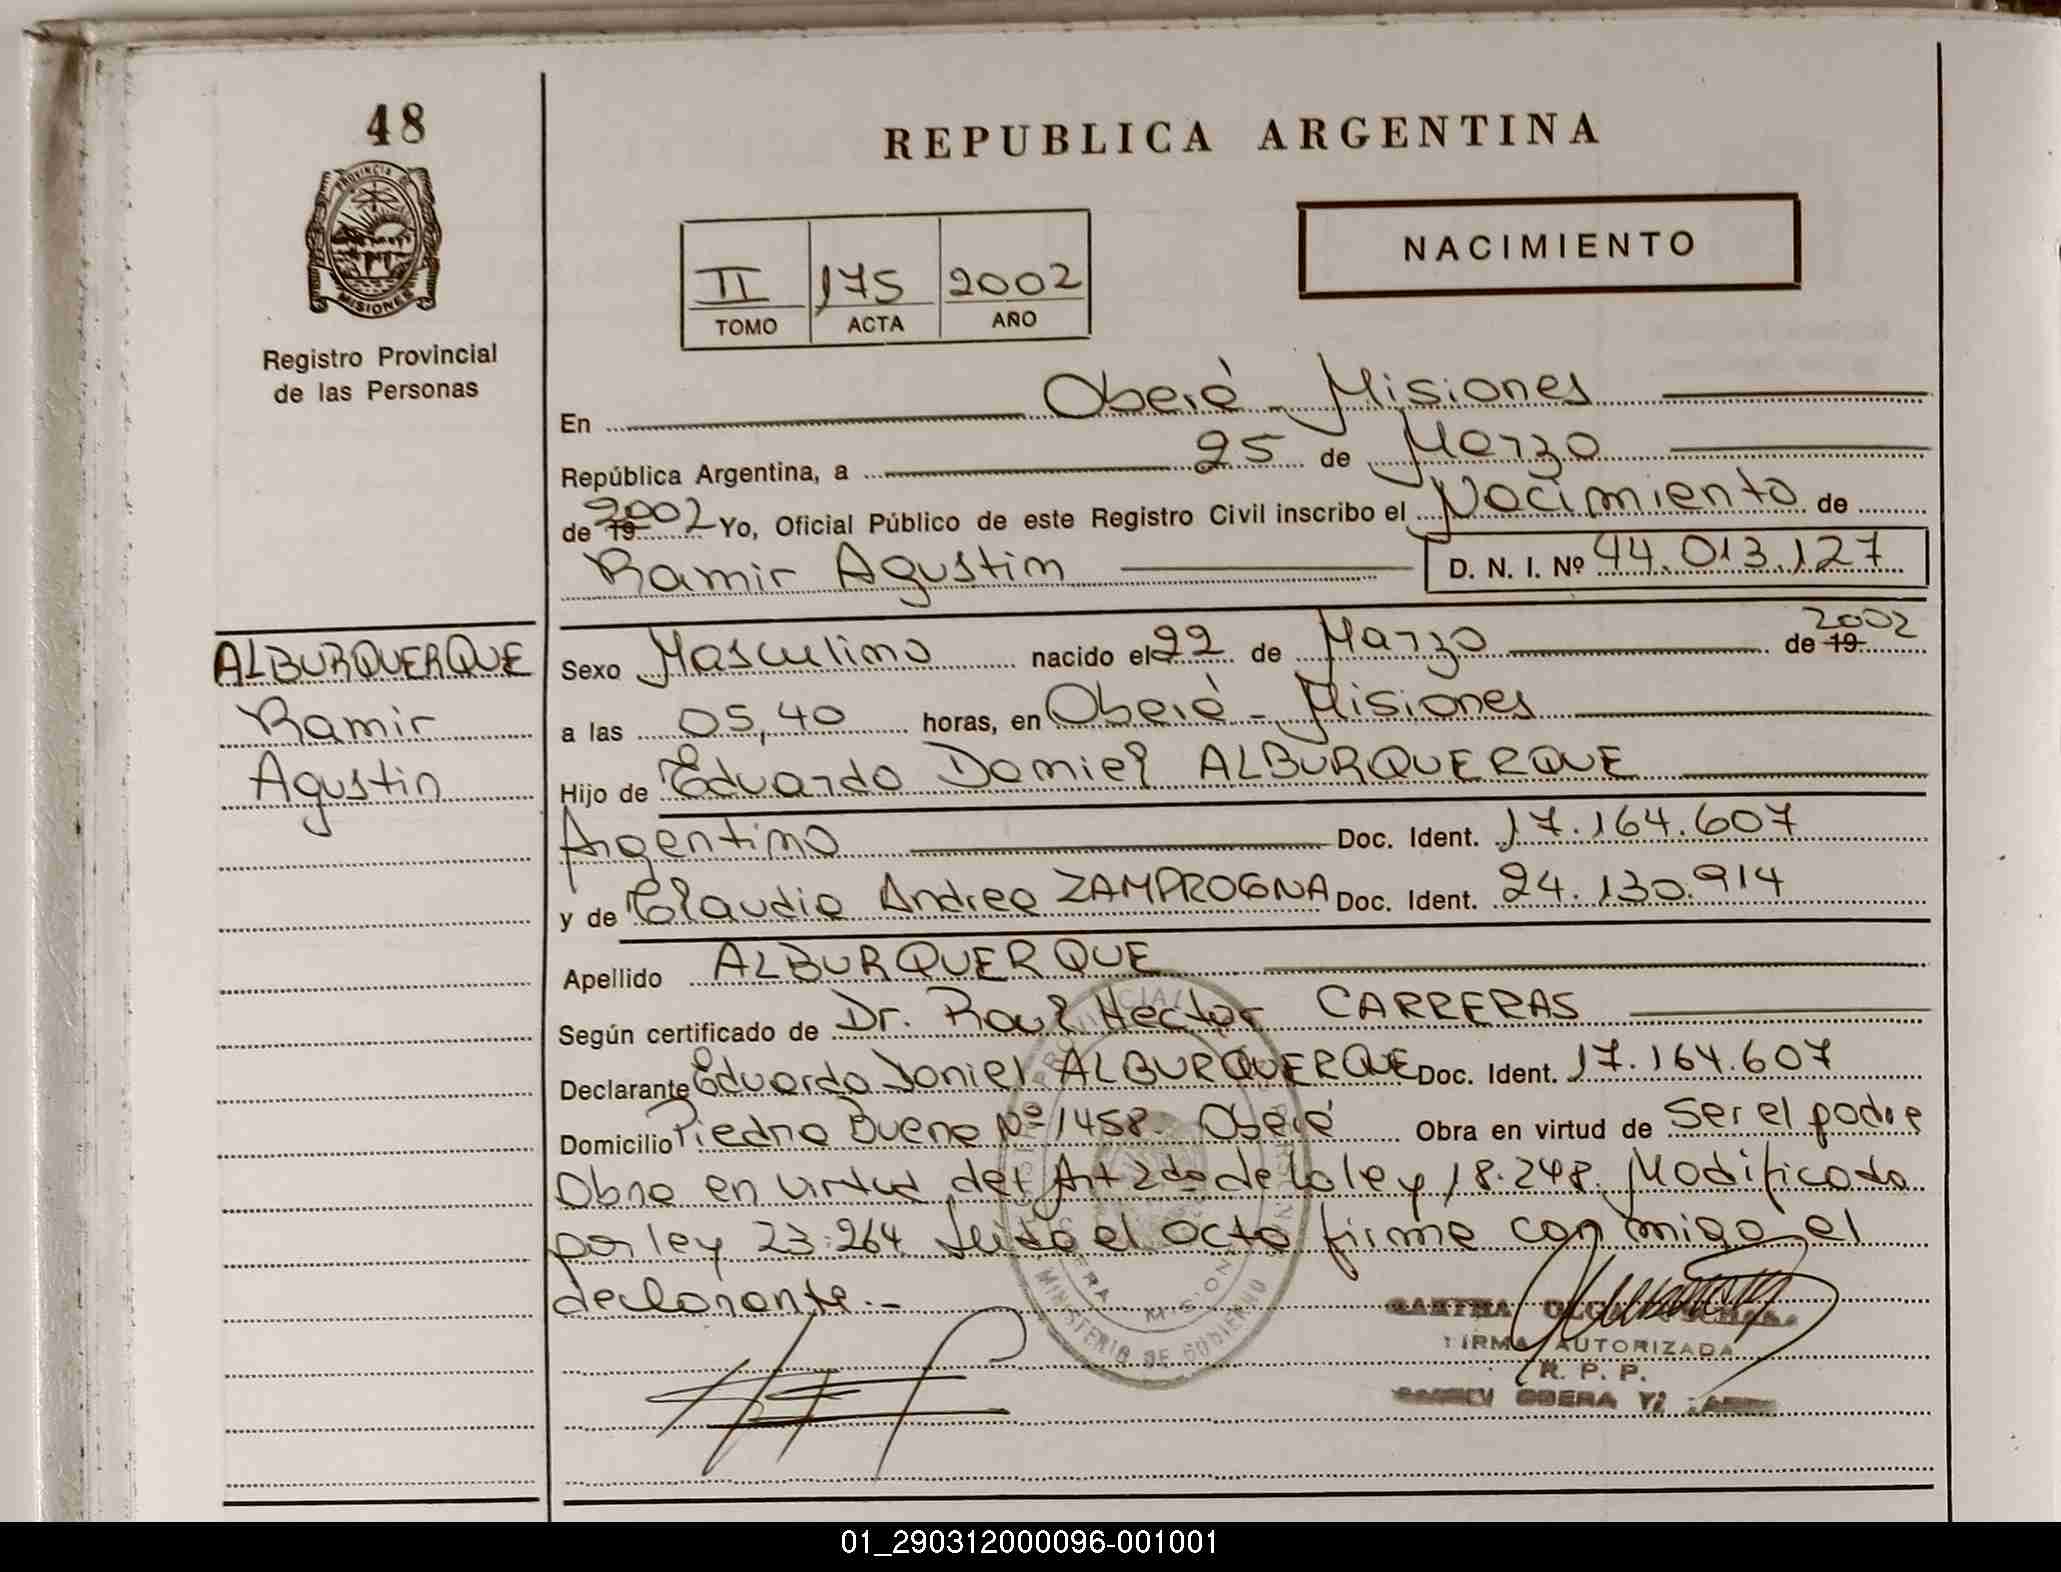 48
PROVINCIA DE
MISIONES
Registro Provincial
de las Personas
REPUBLICA ARGENTINA
NACIMIENTO
II 175 2002
TOMO ACTA AÑO
En Oberá - Misiones
República Argentina, a 25 de Marzo
de 19 2002 Yo, Oficial Público de este Registro Civil inscribo el Nacimiento de
Ramir Agustin D. N. I. Nº 44.013.127
ALBURQUERQUE
Ramir
Agustin
Sexo Masculino nacido el 22 de Marzo de 19 2002
a las 05,40 horas, en Oberá - Misiones
Hijo de Eduardo Daniel ALBURQUERQUE
Argentino Doc. Ident. 17.164.607
y de Claudia Andrea ZAMPROGNA Doc. Ident. 24.130.914
Apellido ALBURQUERQUE
Según certificado de Dr. Raul Hector CARRERAS
Declarante Eduardo Daniel ALBURQUERQUE Doc. Ident. 17.164.607
Domicilio Piedra Buena Nº 1458. Oberá Obra en virtud de Ser el padre
Obra en virtud del Art 2do de la ley 18.248. Modificada
por ley 23.264 Leída el acta firma con migo el
declarante.-
MINISTERIO DE GOBIERNO
FIRMA AUTORIZADA
R. P. P.
OBERA
01_290312000096-001001